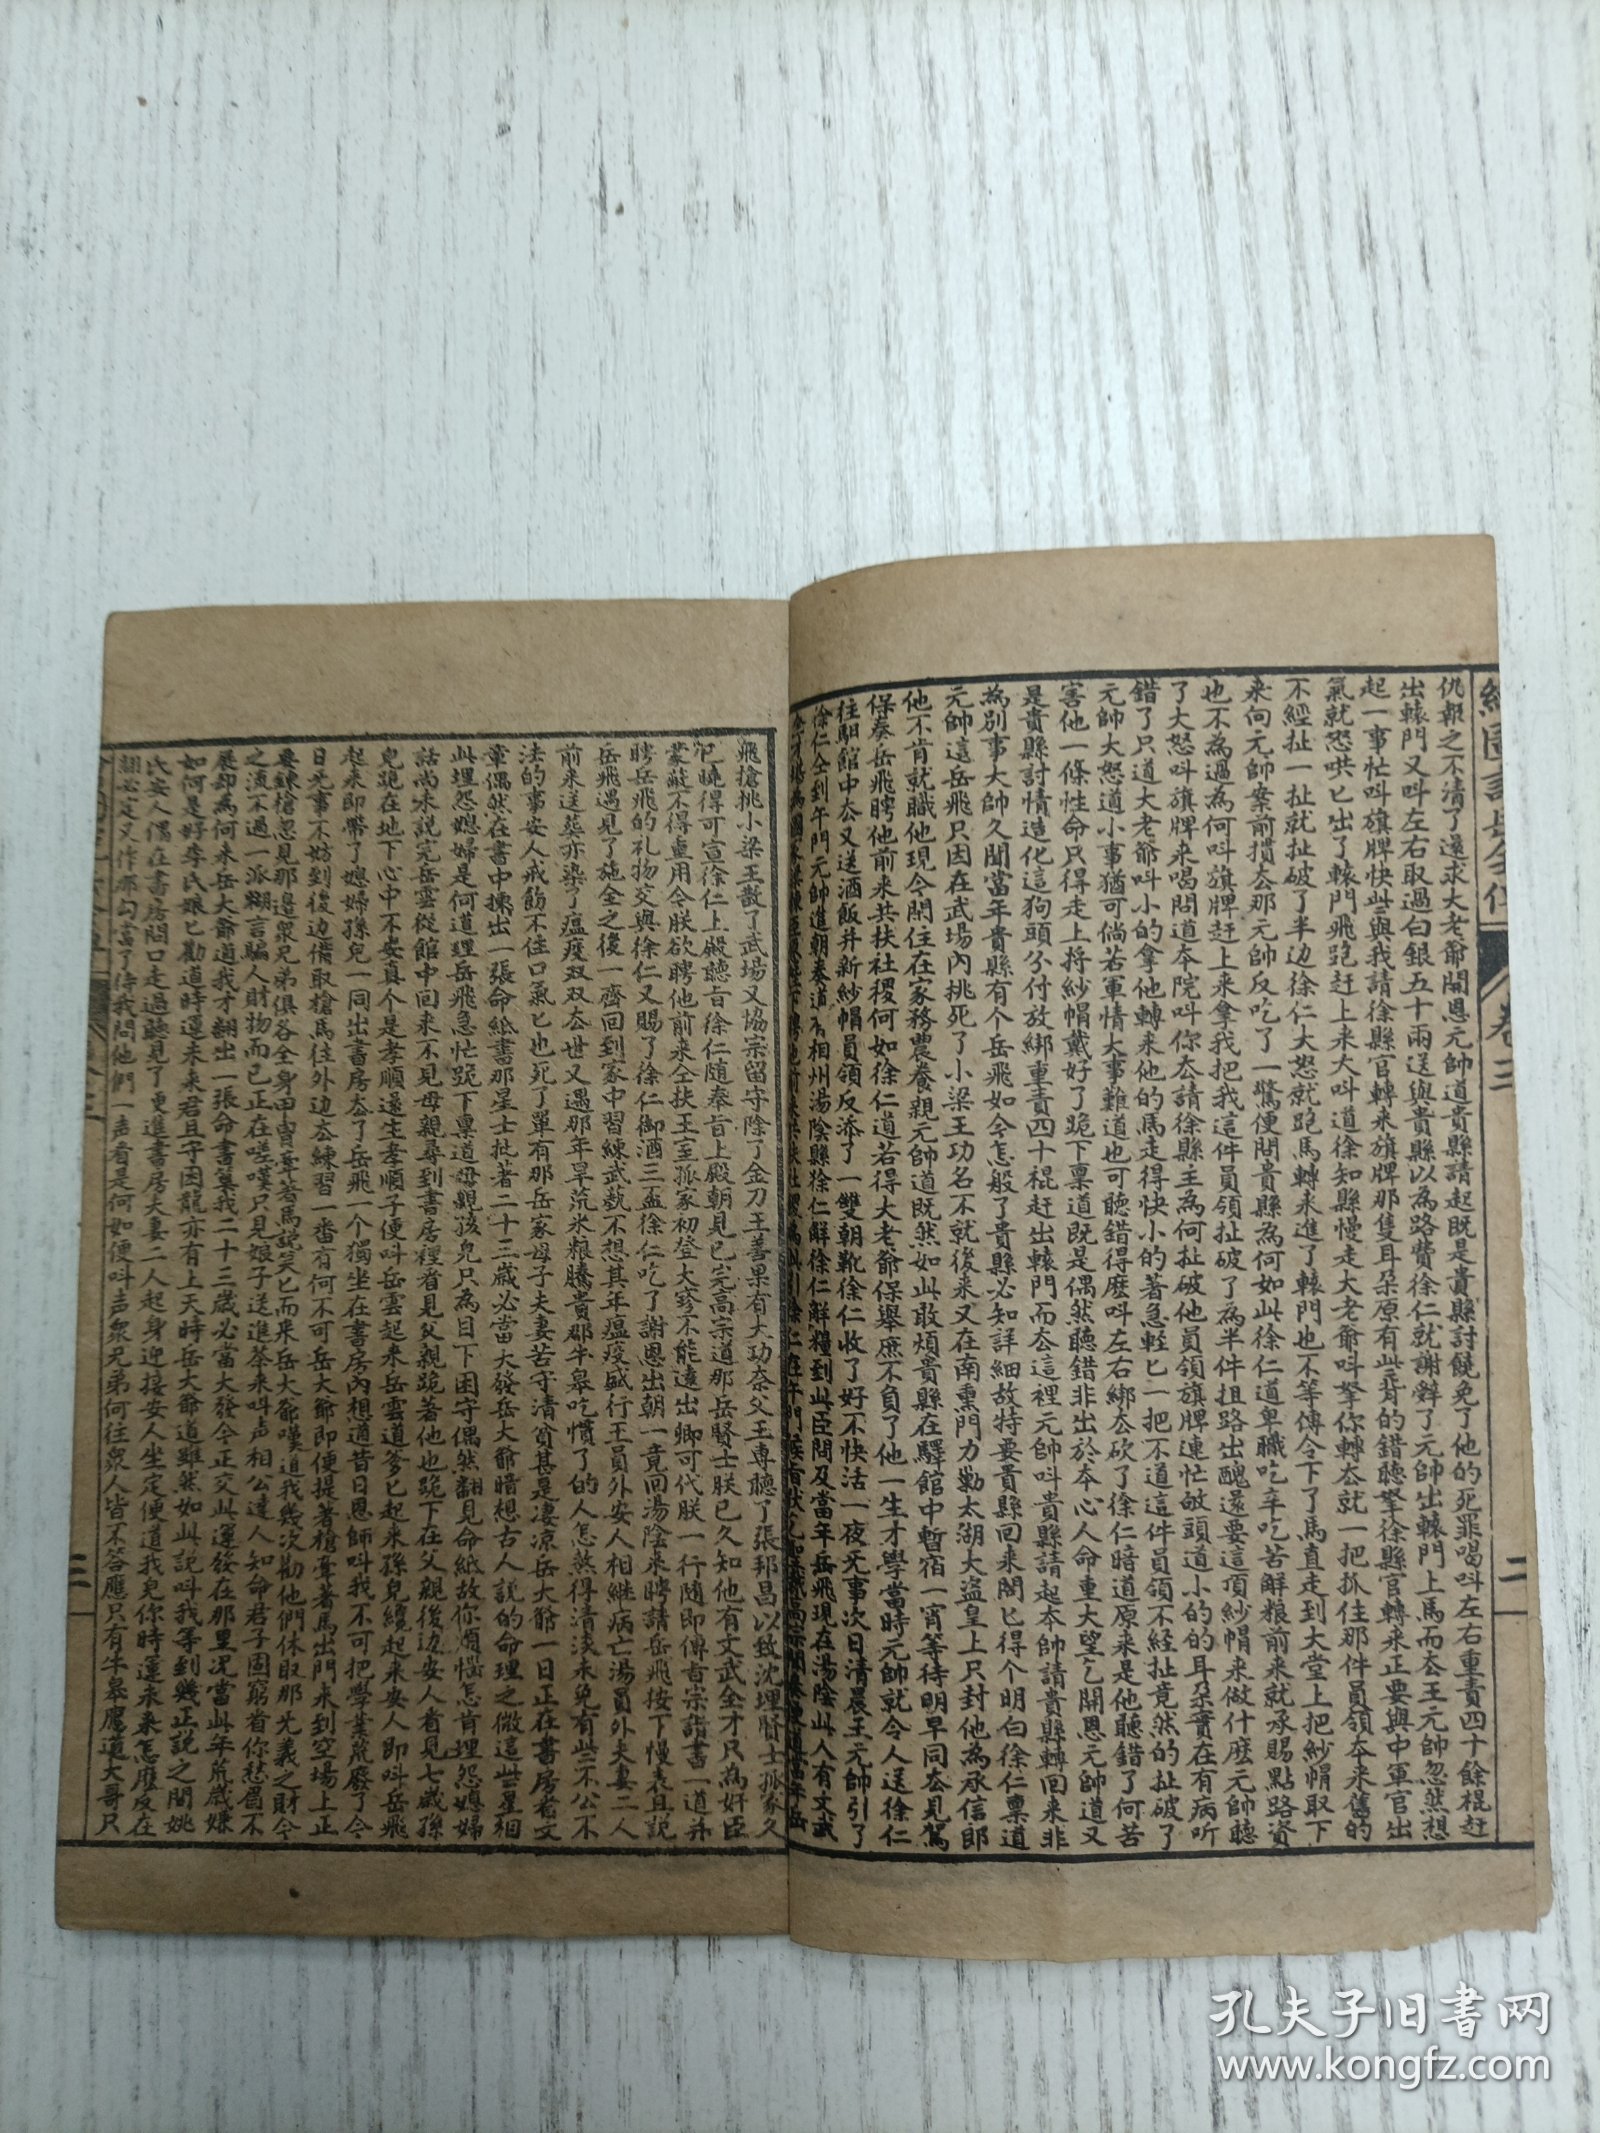 繪圖說岳全傳 卷三 二
仇報之不清了還求大老爺開恩元帥道貴縣請起既是貴縣討饒免了他的死罪喝叫左右重責四十餘棍赶
出轅門又叫左右取過白銀五十兩送與貴縣以為路費徐仁就謝辭了元帥出轅門上馬而去王元帥忽然想
起一事忙叫旗牌快些與我請徐縣官轉來旗牌那隻耳朵原有些背的錯聽拏徐縣官轉來正要與中軍官出
氣就怒哄匕出了轅門飛跑赶上來大叫道徐知縣慢走大老爺叫拏你轉去就一把抓住那件員領本來舊的
不經扯一扯就扯破了半边徐仁大怒就跑馬轉來進了轅門也不等傳令下了馬直走到大堂上把紗帽取下
來向元帥案前摜去那元帥反吃了一驚便問貴縣為何如此徐仁道卑職吃辛吃苦解粮前來就承賜點路資
也不為過為何叫旗牌赶上來拿我把我這件員領扯破了為半件扭路出醜還要這頂紗帽來做什麽元帥聽
了大怒叫旗牌來喝問道本院叫你去請徐縣主為何扯破他員領旗牌連忙敂頭道小的的耳朶實在有病听
錯了只道大老爺叫小的拿他轉來他的馬走得快小的著急輕匕一把不道這件員領不経扯竟然的扯破了
元帥大怒道小事猶可倘若軍情大事難道也可聽錯得麽叫左右綁去砍了徐仁暗道原來是他聽錯了何苦
害他一條性命只得走上將紗帽戴好了跪下稟道既是偶然聽錯非出於本心人命重大望乞開恩元帥道又
是貴縣討情造化這狗頭分付放綁重責四十棍赶出轅門而去這裡元帥叫貴縣請起本帥請貴縣轉回來非
為別事大帥久聞當年貴縣有個岳飛如今怎般了貴縣必知詳細故特要貴縣回來問匕得个明白徐仁稟道
元帥這岳飛只因在武場內挑死了小梁王功名不就後來又在南熏門力勦太湖大盜皇上只封他為承信郎
他不肯就職他現今閒住在家務農養親元帥道既然如此敢煩貴縣在驛館中暫宿一宵等待明早同去見駕
保奏岳飛聘他前來共扶社稷何如徐仁道若得大老爺保舉庶不負了他一生才學當時元帥就令人送徐仁
往馹館中去又送酒飯并新紗帽員領反添了一雙朝靴徐仁收了好不快活一夜无事次日清晨王元帥引了
徐仁仝到午門元帥進朝奏道有相州湯陰縣徐仁解糧到此臣問及當年岳飛現在湯陰此人有文武
飛搶挑小梁王散了武場又協宗留守除了金刀王善果有大功奈父王專聽了張邦昌以致沈埋賢士孤家久
已曉得可宣徐仁上殿聽旨徐仁随奉旨上殿朝見已完高宗道那岳賢士朕已久知他有文武全才只為奸臣
蒙蔽不得重用令朕欲聘他前來仝扶王至孤家初登大寳不能遠出卿可代朕一行随即傳旨宗詔書一道并
聘岳飛的礼物交與徐仁又賜了徐仁御酒三盃徐仁吃了謝恩出朝一竟回湯陰來聘請岳飛按下慢表且說
岳飛遇見了施全之後一齊回到家中習練武執不想其年瘟疫盛行王員外安人相継病亡湯員外夫妻二人
前來送葬亦染了瘟疫双双去世又遇那年旱荒米粮騰貴那牛皋吃慣了的人怎熬得清淡未免有些不公不
法的事安人戒飭不住口氣匕也死了單有那岳家母子夫妻苦守清貧甚是凄凉岳大爺一日正在書房看文
章偶然在書中揀出一張命紙書那星士批著二十三歲必當大發岳大爺暗想古人說的命理之微這些星相
此埋怨媳婦是何道理岳飛急忙跪下稟道母親孩兒只為目下困守偶然翻見命紙故你煩惱怎肯埋怨媳婦
話尚未說完岳雲從館中回來不見母親尋到書房裡看見父親跪著他也跪下在父親後边安人看見七歲孫
兒跪在地下心中不安真个是孝順還生孝順子便叫岳雲起來岳雲道爹匕起來孫兒纔起來安人即叫岳飛
起來即帶了媳婦孫兒一同出書房去了岳飛一个獨坐在書房內想道昔日恩師叫我不可把學業荒廢了今
日无事不妨到後边備取搶馬往外边去練習一番有何不可岳大爺即便提著槍牽著馬出門來到空場上正
要練槍忽見那邊衆兄弟俱各全身甲冑牽著馬說笑匕而來岳大爺嘆道我幾次勸他們休取那无義之財今
之流不過一派糊言騙人財物而已正在嗟嘆只見娘子送進茶來叫声相公達人知命君子固窮看你愁眉不
展却為何來岳大爺道我才翻出一張命書算我二十三歲必當大發今正交此運發在那里况當此年荒歲嫌
如何是好李氏娘匕勸道時運未来君且守困龍亦有上天時岳大爺道雖然如此說叫我等到幾正說之間姚
氏安人偶在書房門口走過聽見了便進書房夫妻二人起身迎接安人坐定便道我兒你時運未來怎麽反在
翻必定又作那勾當了待我問他們一声看是何如便叫声衆兄弟何往衆人皆不答應只有牛皋應道大哥只
三
孔夫子旧書网
www.kongfz.com